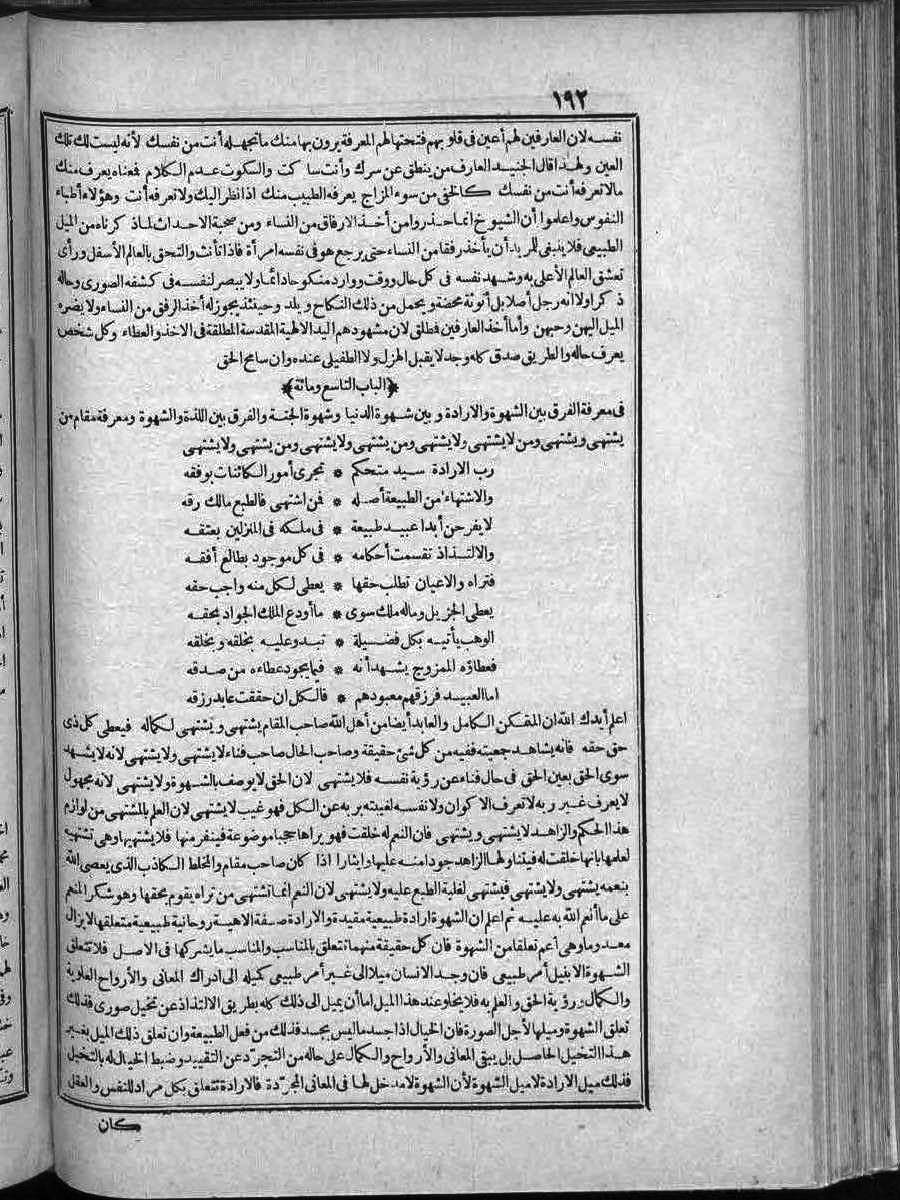 ١٩٢
نفسه لان العارفين لهم أعين فى قلوبهم فتحتها لهم المعرفة يرون بها منك ما تجهله أنت من نفسك لأنه ليست لك تلك
العين ولهذا قال الجنيد العارف من ينطق عن سرك وأنت ساكت والسكوت عدم الكلام فمعناه يعرف منك
مالا تعرفه أنت من نفسك كالخفى من سوء المزاج يعرفه الطبيب منك اذا نظر اليك ولا تعرفه أنت وهؤلاء أطباء
النفوس واعلموا أن الشيوخ انما حذروا من أخذ الارفاق من النساء ومن صحبة الاحداث لما ذكرناه من الميل
الطبيعى فلا ينبغى للمريد أن يأخذ رفقا من النساء حتى يرجع هو فى نفسه امرأة فاذا تأنث والتحق بالعالم الأسفل ورأى
تعشق العالم الأعلى به وشهد نفسه فى كل حال ووقت ووارد منكوحا دائما ولا يبصر لنفسه فى كشفه الصورى وحاله
ذكرا ولا انه رجل أصلا بل أنوثة محضة ويحمل من ذلك النكاح ويلد وحينئذ يجوز له أخذ الرفق من النساء ولا يضره
الميل اليهن وحبهن وأما أخذ العارفين فمطلق لان مشهودهم اليد الالهية المقدسة المطلقة فى الاخذ والعطاء وكل شخص
يعرف حاله والطريق صدق كله وجد لا يقبل الهزل ولا الطفيلى عنده وان سامح الحق
﴿الباب التاسع ومائة﴾
فى معرفة الفرق بين الشهوة والارادة وبين شهوة الدنيا وشهوة الجنة والفرق بين اللذة والشهوة ومعرفة مقام من
يشتهى ويشتهى ومن لا يشتهى ولا يشتهى ومن يشتهى ولا يشتهى ومن يشتهى ولا يشتهى
رب الارادة سيد متحكم * تجرى أمور الكائنات بوفقه
والاشتهاء من الطبيعة أصله * فمن اشتهى فالطبع مالك رقه
لا يفرحن أبدا عبيد طبيعة * فى ملكه فى المنزلين بعتقه
والالتذاذ تقسمت أحكامه * فى كل موجود بطالع أفقه
فتراه والاعيان تطلب حقها * يعطى لكل منه واجب حقه
يعطى الجزيل وماله ملك سوى * ما أودع الملك الجواد بحقه
الوهب يأتيه بكل فضيلة * تبدو عليه بخلقه وبخلقه
فعطاؤه الممزوج يشهد أنه * فيما يجود عطاءه من صدقه
اما العبيد فرزقهم معبودهم * فالكل ان حققت عابد رزقه
اعلم أيدك الله ان المتمكن الكامل والعابد أيضا من أهل الله صاحب المقام يشتهى ويشتهى لكماله فيعطى كل ذى
حق حقه فانه يشاهد جمعيته ففيه من كل شئ حقيقة وصاحب الحال صاحب فناء لا يشتهى ولا يشتهى لانه لا يشهد
سوى الحق بعين الحق فى حال فناء عن رؤية نفسه فلا يشتهى لان الحق لا يوصف بالشهوة ولا يشتهى لانه مجهول
لا يعرف غير ربه لا تعرف الاكوان ولا نفسه لغيبته بربه عن الكل فهو غيب لا يشتهى لان العلم بالمشتهى من لوازم
هذا الحكم والزاهد لا يشتهى ويشتهى فان النعم له خلقت فهو يراها حجبا موضوعة فينفر منها فلا يشتهيها وهى تشتهيه
لعلمها بانها خلقت له فيتناولها الزاهد جودا منه عليها وايثارا اذا كان صاحب مقام والمخلط الكاذب الذى يعصى الله
بنعمه يشتهى ولا يشتهى فيشتهى لغلبة الطبع عليه ولا يشتهى لان النعم انما تشتهى من تراه يقوم بحقها وهو شكر المنعم
على ما أنعم الله به عليه ثم اعلم ان الشهوة ارادة طبيعية مقيدة والارادة صفة الاهية روحانية طبيعية متعلقها لا يزال
معدوما وهى أعم تعلقا من الشهوة فان كل حقيقة منهما تتعلق بالمناسب والمناسب ما يشركها فى الاصل فلا تتعلق
الشهوة الا بنيل أمر طبيعى فان وجد الانسان ميلا الى غير أمر طبيعى كميله الى ادراك المعانى والأرواح العلوية
والكمال ورؤية الحق والعلم به فلا يخلو عند هذا الميل اما أن يميل الى ذلك كله بطريق الالتذاذ عن تخيل صورى فذلك
تعلق الشهوة وميلها لأجل الصورة فان الخيال اذا جسد ما ليس بجسد فذلك من فعل الطبيعة وان تعلق ذلك الميل بغير
هذا التخيل الحاصل بل يبقى المعانى والأرواح والكمال على حاله من التجرّد عن التقييد وضبط الخيال له بالتخيل
فذلك ميل الارادة لا ميل الشهوة لأن الشهوة لا مدخل لها فى المعانى المجرّدة فالارادة تتعلق بكل مراد للنفس والعقل
كان